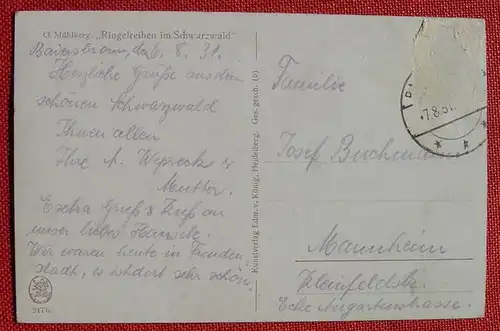 G. Mühlberg: „Ringelreihen im Schwarzwald"
Baiersbronn, d. 6. 8. 31.
Herzliche Grüße aus dem
schönen Schwarzwald
Ihnen allen
Ihre A. &
Mutter.
Extra Gruß & Kuß an
unser liebes Hansele.
Wir waren heute in Freuden-
stadt, es ist dort sehr schön.
9171
Kunstverlag Edm. v. König, Heidelberg. Ges. gesch. (6)
7.8.31
Familie
Josef Buchmann
Mannheim
Kleinfeldstr.
Ecke Augartenstrasse.